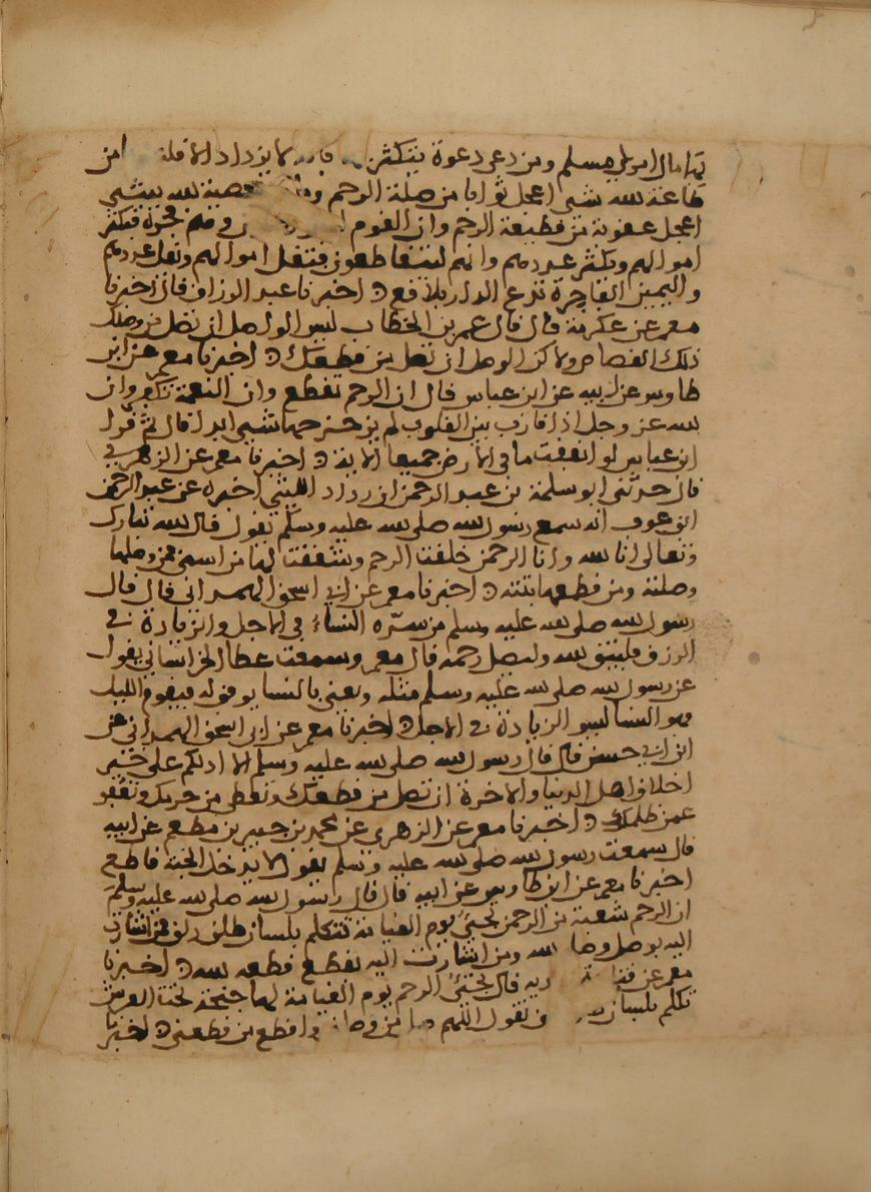 بها مال امرئ مسلم ومن دعى دعوة يتكثر بها فانه لا يزداد الا قلة من
طاعة الله شي اعجل ثوابا من صلة الرحم معصية الله بشي
اعجل عقوبة من قطيعة الرحم وان القوم وهم فجرة فتكثر
اموالهم ويكثر عددهم وانهم ليتقاطعون فتقل اموالهم ويقل عددهم
واليمين الفاجرة تدع الدار بلاقع ه اخبرنا عبد الرزاق قال اخبرنا
معمر عن عكرمة قال قال عمر بن الخطاب ليس الوصل ان تصل من وصلك
ذلك القصاص ولا كن الوصل ان تصل من قطعك ه اخبرنا معمر عن ابن
طاوس عن ابيه عن ابن عباس قال ان الرحم تقطع وان النعمة تكفر وان
الله عز وجل اذا قارب بين القلوب لم يزحزحها شي ابدا قال ثم قرا
ابن عباس لو انفقت ما في الارض جميعا الاية ه اخبرنا معمر عن الزهري
قال حدثني ابو سلمة بن عبد الرحمن ان رداد الليثي اخبره عن عبد الرحمن
ابن عوف انه سمع رسول الله صلى الله عليه وسلم يقول قال الله تبارك
وتعالى انا الله وانا الرحمن خلقت الرحم وشققت لها من اسمي فمن وصلها
وصلته ومن قطعها بتته ه اخبرنا معمر عن ابي اسحق الهمداني قال قال
رسول الله صلى الله عليه وسلم من سره النساء في الاجل والزيادة في
الرزق فليتق الله وليصل رحمه قال معمر وسمعت عطا الخراساني يقول
عن رسول الله صلى الله عليه وسلم مثله ويعني بالنسا يوفق له فيقوم الليل
فهو النسا ليس الزيادة في الاجل ه اخبرنا معمر عن ابي اسحق الهمداني عن
ابن ابي حسين قال قال رسول الله صلى الله عليه وسلم الا ادلكم على خير
اخلاق اهل الدنيا والاخرة ان تصل من قطعك وتعطي من حرمك وتعفو
عمن ظلمك ه اخبرنا معمر عن الزهري عن محمد بن جبير بن مطعم عن ابيه
قال سمعت رسول الله صلى الله عليه وسلم يقول لا يدخل الجنة قاطع
اخبرنا معمر عن ابن طاوس عن ابيه قال قال رسول الله صلى الله عليه وسلم
ان الرحم شعبة من الرحمن تجيء يوم القيامة تتكلم بلسان طلق ذلق فمن اشارت
اليه بوصل وصله الله ومن اشارت اليه بقطع قطعه الله ه اخبرنا
معمر عن قتادة قال تجيء الرحم يوم القيامة لها حجنة تحت العرش
تكلم بلسان وتقول اللهم صل من وصلني واقطع من قطعني ه اخبرنا